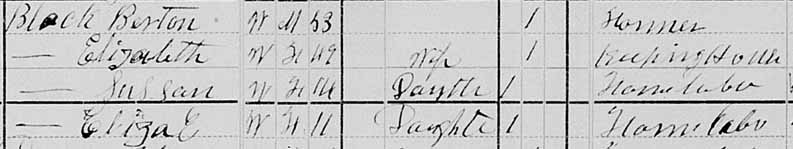 Black Berton W M 53 1 Farmer
— Elizabeth W F 49 Wife 1 Keeping House
— Sussan W F 16 Daughte 1 Home labor
— Eliza E W F 11 Daughte 1 Home labor